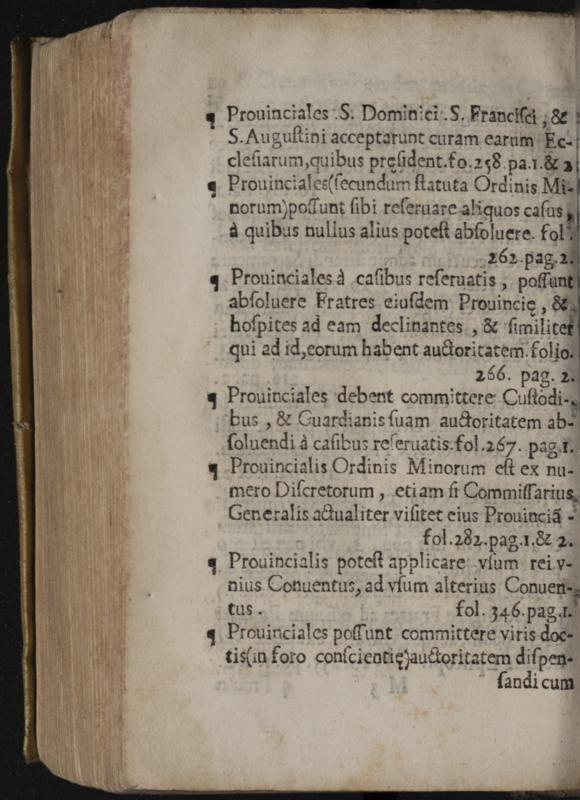 ¶ Prouinciales .S. Dominici .S. Franciſci, &
S. Auguſtini acceptarunt curam earum Ec-
cleſiarum, quibus pręſident. fo. 258. pa. 1. & 2
¶ Prouinciales (ſecundum ſtatuta Ordinis Mi-
norum) poſſunt ſibi reſeruare aliquos caſus,
à quibus nullus alius poteſt abſoluere. fol.
262. pag. 2.
¶ Prouinciales à caſibus reſeruatis, poſſunt
abſoluere Fratres eiuſdem Prouincię, &
hoſpites ad eam declinantes, & ſimiliter
qui ad id, eorum habent auctoritatem. folio.
266. pag. 2.
¶ Prouinciales debent committere Cuſtodi-
bus, & Guardianis ſuam auctoritatem ab-
ſoluendi à caſibus reſeruatis. fol. 267. pag. 1.
¶ Prouincialis Ordinis Minorum eſt ex nu-
mero Diſcretorum, etiam ſi Commiſſarius
Generalis actualiter viſitet eius Prouinciā -
fol. 282. pag. 1. & 2.
¶ Prouincialis poteſt applicare vſum rei v-
nius Conuentus, ad vſum alterius Conuen-
tus. fol. 346. pag. 1.
¶ Prouinciales poſſunt committere viris doc-
tis (in foro conſcientię) auctoritatem diſpen-
ſandi cum